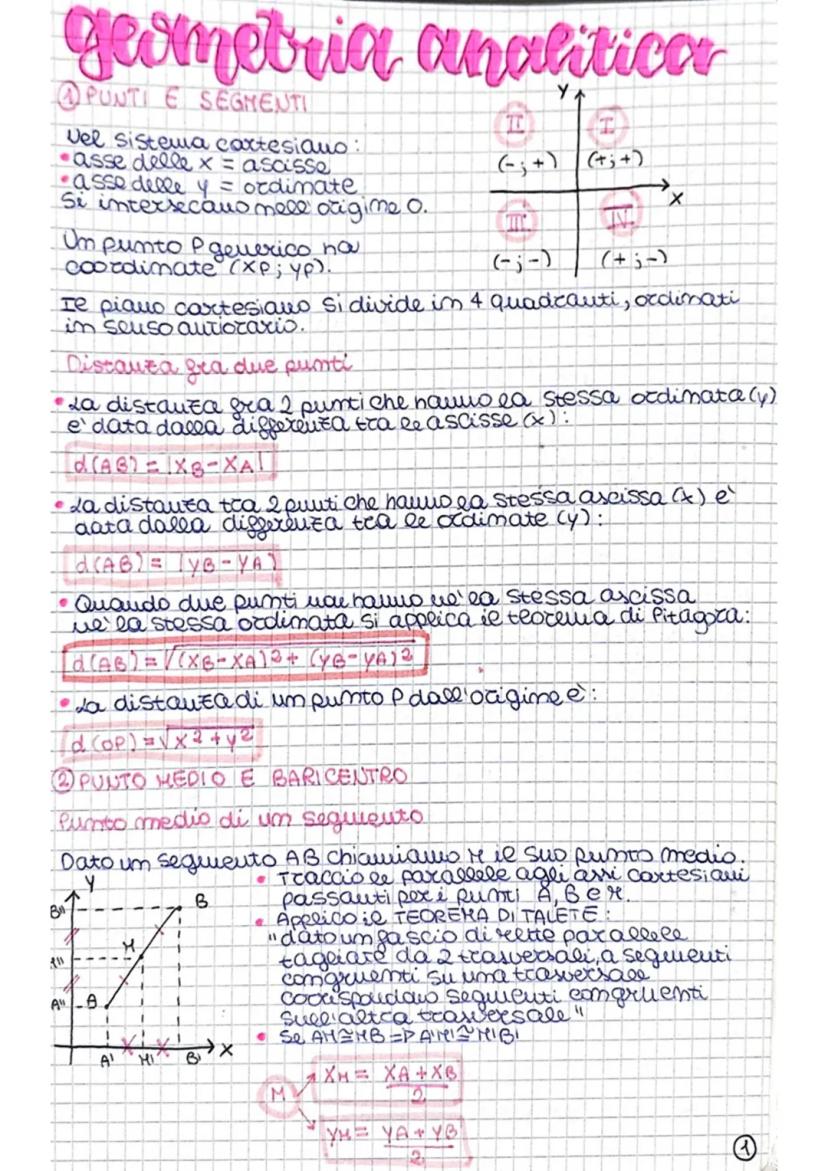 geometria analitica
① PUNTI E SEGMENTI
Nel sistema cartesiano:
• asse delle x = ascisse
• asse delle y = ordinate
Si intersecano nell'origine O.
Un punto P generico ha
coordinate (xp; yp).
Y
II
I
(-;+)
(+;+)
X
III
IV
(-;-)
(+;-)
Il piano cartesiano si divide in 4 quadranti, ordinati
in senso antiorario.
Distanza fra due punti
• La distanza fra 2 punti che hanno la stessa ordinata (y)
e' data dalla differenza tra le ascisse (x):
d(AB) = |XB-XA|
• La distanza tra 2 punti che hanno la stessa ascissa (x) e'
data dalla differenza tra le ordinate (y):
d(AB) = |YB-YA|
• Quando due punti non hanno ne' la stessa ascissa
ne' la stessa ordinata si applica il teorema di Pitagora:
d(AB) = √(XB-XA)2 + (YB-YA)2
• La distanza di un punto P dall'origine è:
d(OP) = √x2+y2
② PUNTO MEDIO E BARICENTRO
Punto medio di un segmento
Dato un segmento AB chiamiamo M il suo punto medio.
• Traccio le parallele agli assi cartesiani
passanti per i punti A, B e M.
• Applico il TEOREMA DI TALETE:
"dato un fascio di rette parallele
tagliate da 2 trasversali, a segmenti
congruenti su una trasversale
corrispondono segmenti congruenti
sull'altra trasversale"
• Se AM≅MB => A'M'≅M'B'
Y
B"
B
M
M"
A"
A
A'
M'
B'
X
M
XM = XA+XB
2
YM = YA+YB
2
1